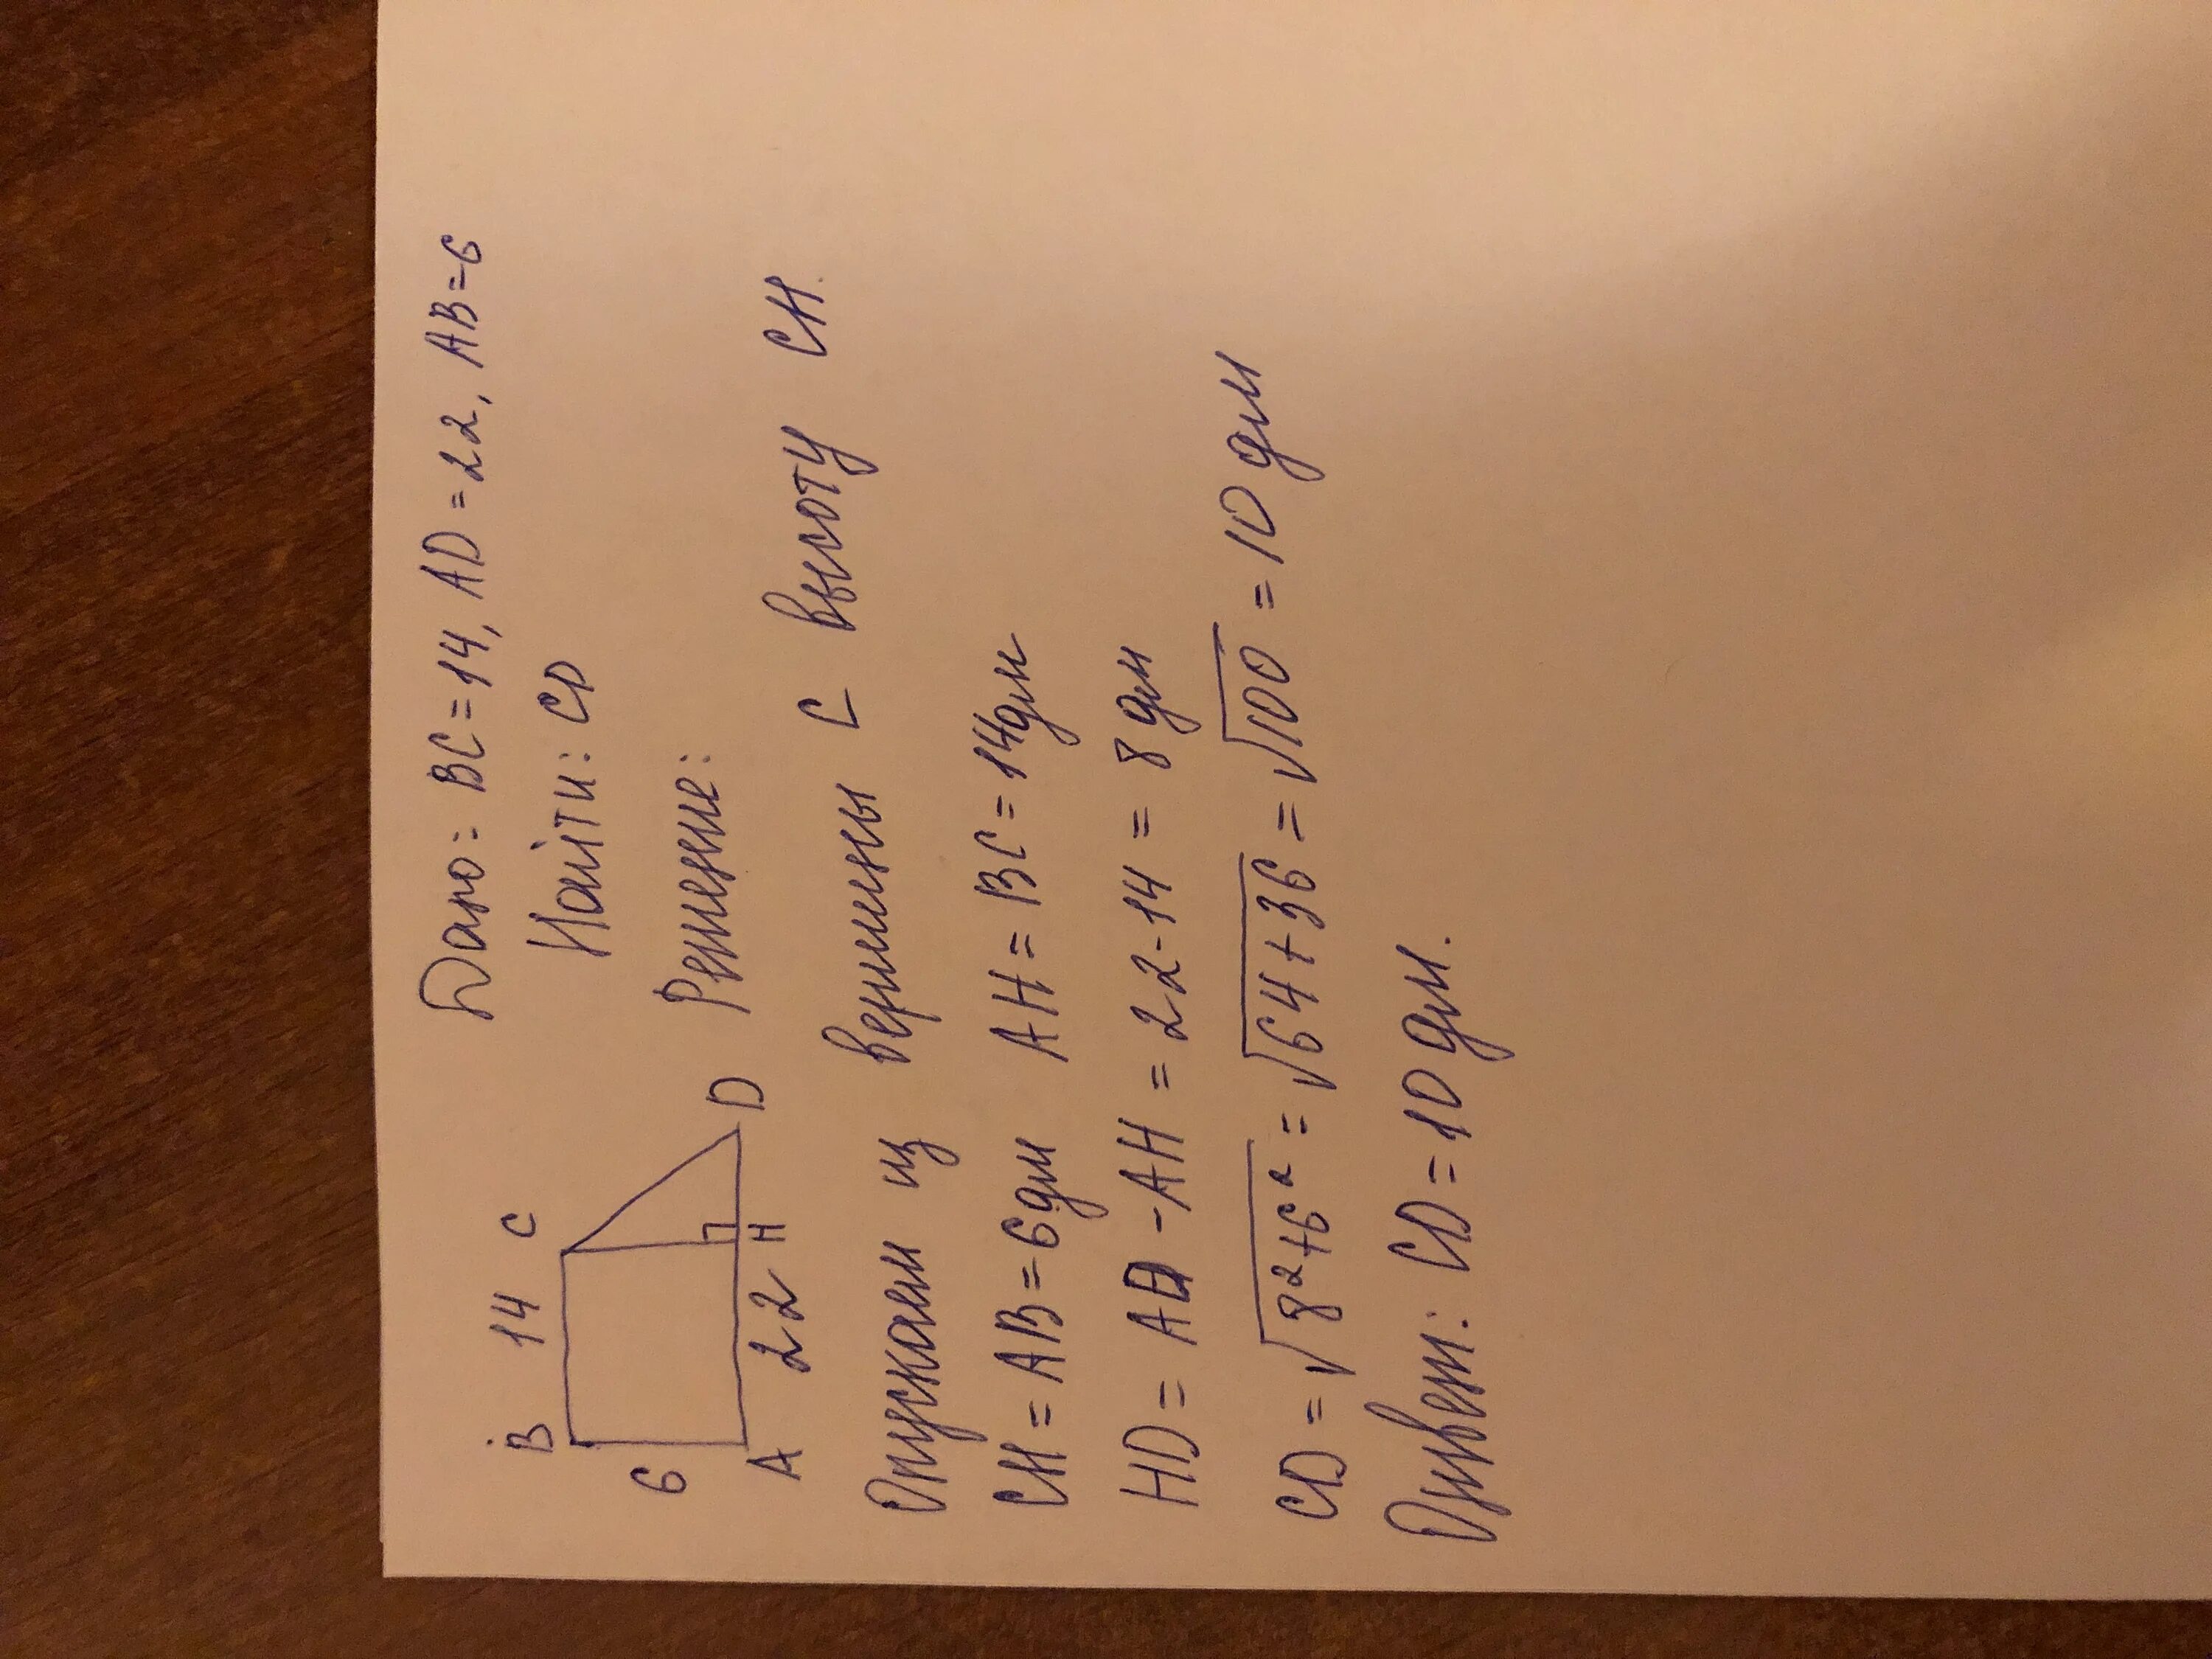 Дано: BC=14, AD=22, AB=6
Найти: CD
B 14 C
6
A 22 H D
Решение:
Опускаем из вершины С высоту CH.
CH=AB=6дм AH=BC=14дм
HD=AD-AH=22-14=8дм
CD=√8²+6²=√64+36=√100=10дм
Ответ: CD=10дм.